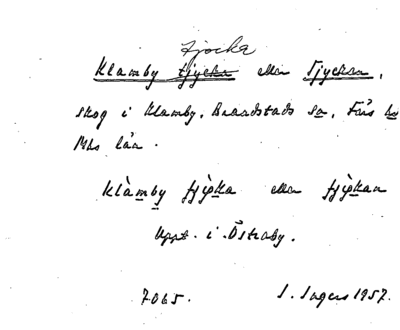 tjocka
Klamby tjycka eller Tjyckan,
skog i Klamby, Brandstads sn, Färs hd
Mhs län.
klàmby tjỳka eller tjỳkan
Uppt. i Östraby.
7065. S. Ingers 1957.